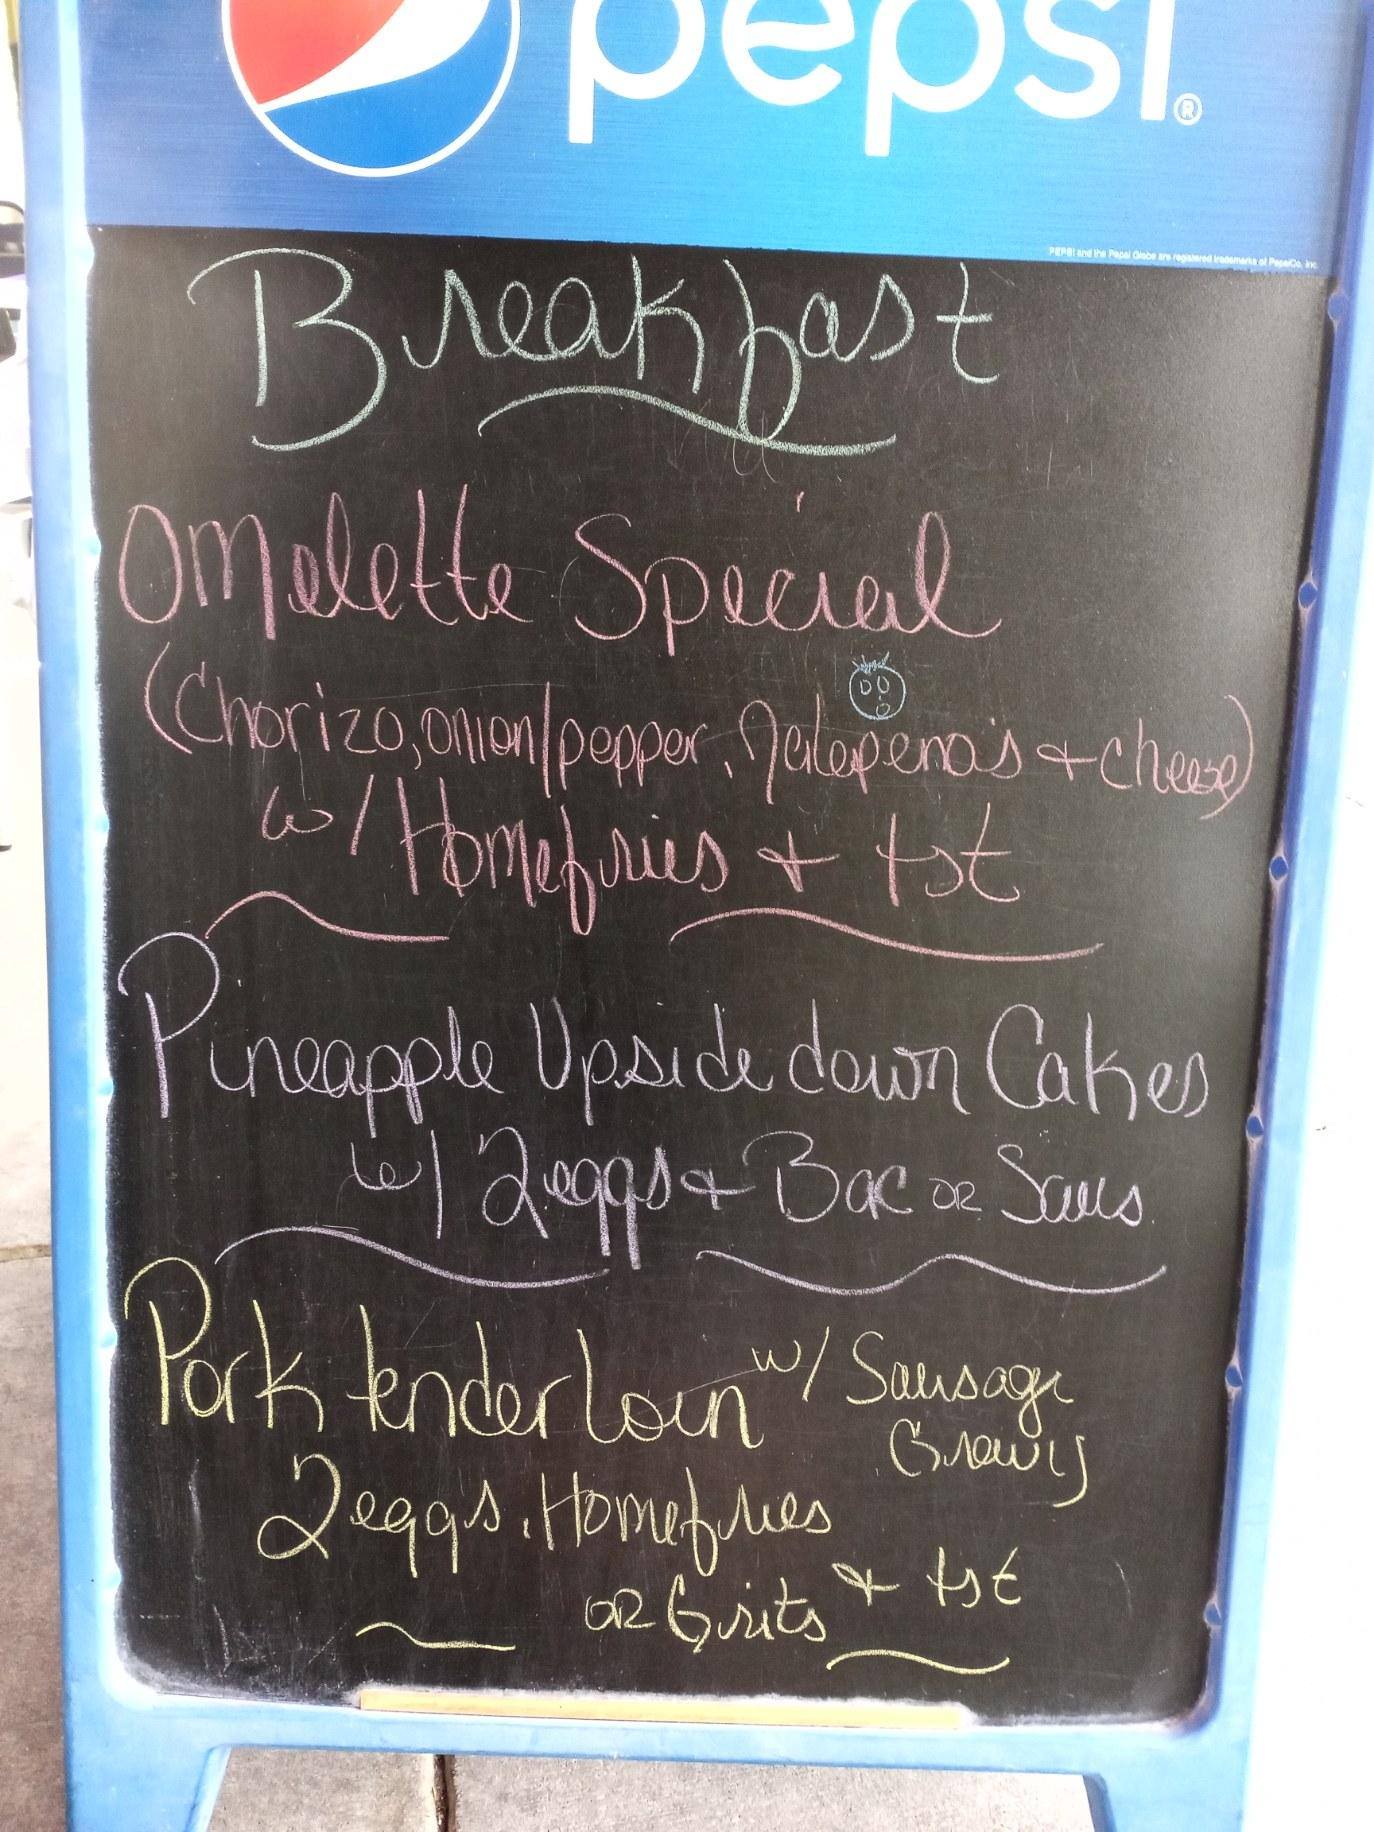 pepsi®
PEPSI and the Pepsi Globe are registered trademarks of PepsiCo, Inc.
Breakfast
Omelette Special
(Chorizo, onion/pepper, Jalepeno's + cheese)
w/ Homefries + tst
Pineapple Upside down Cakes
w/ 2 eggs + Bac OR Saus
Pork tenderloin w/ Sausage
Gravy
2 eggs, Homefries
OR Grits + tst